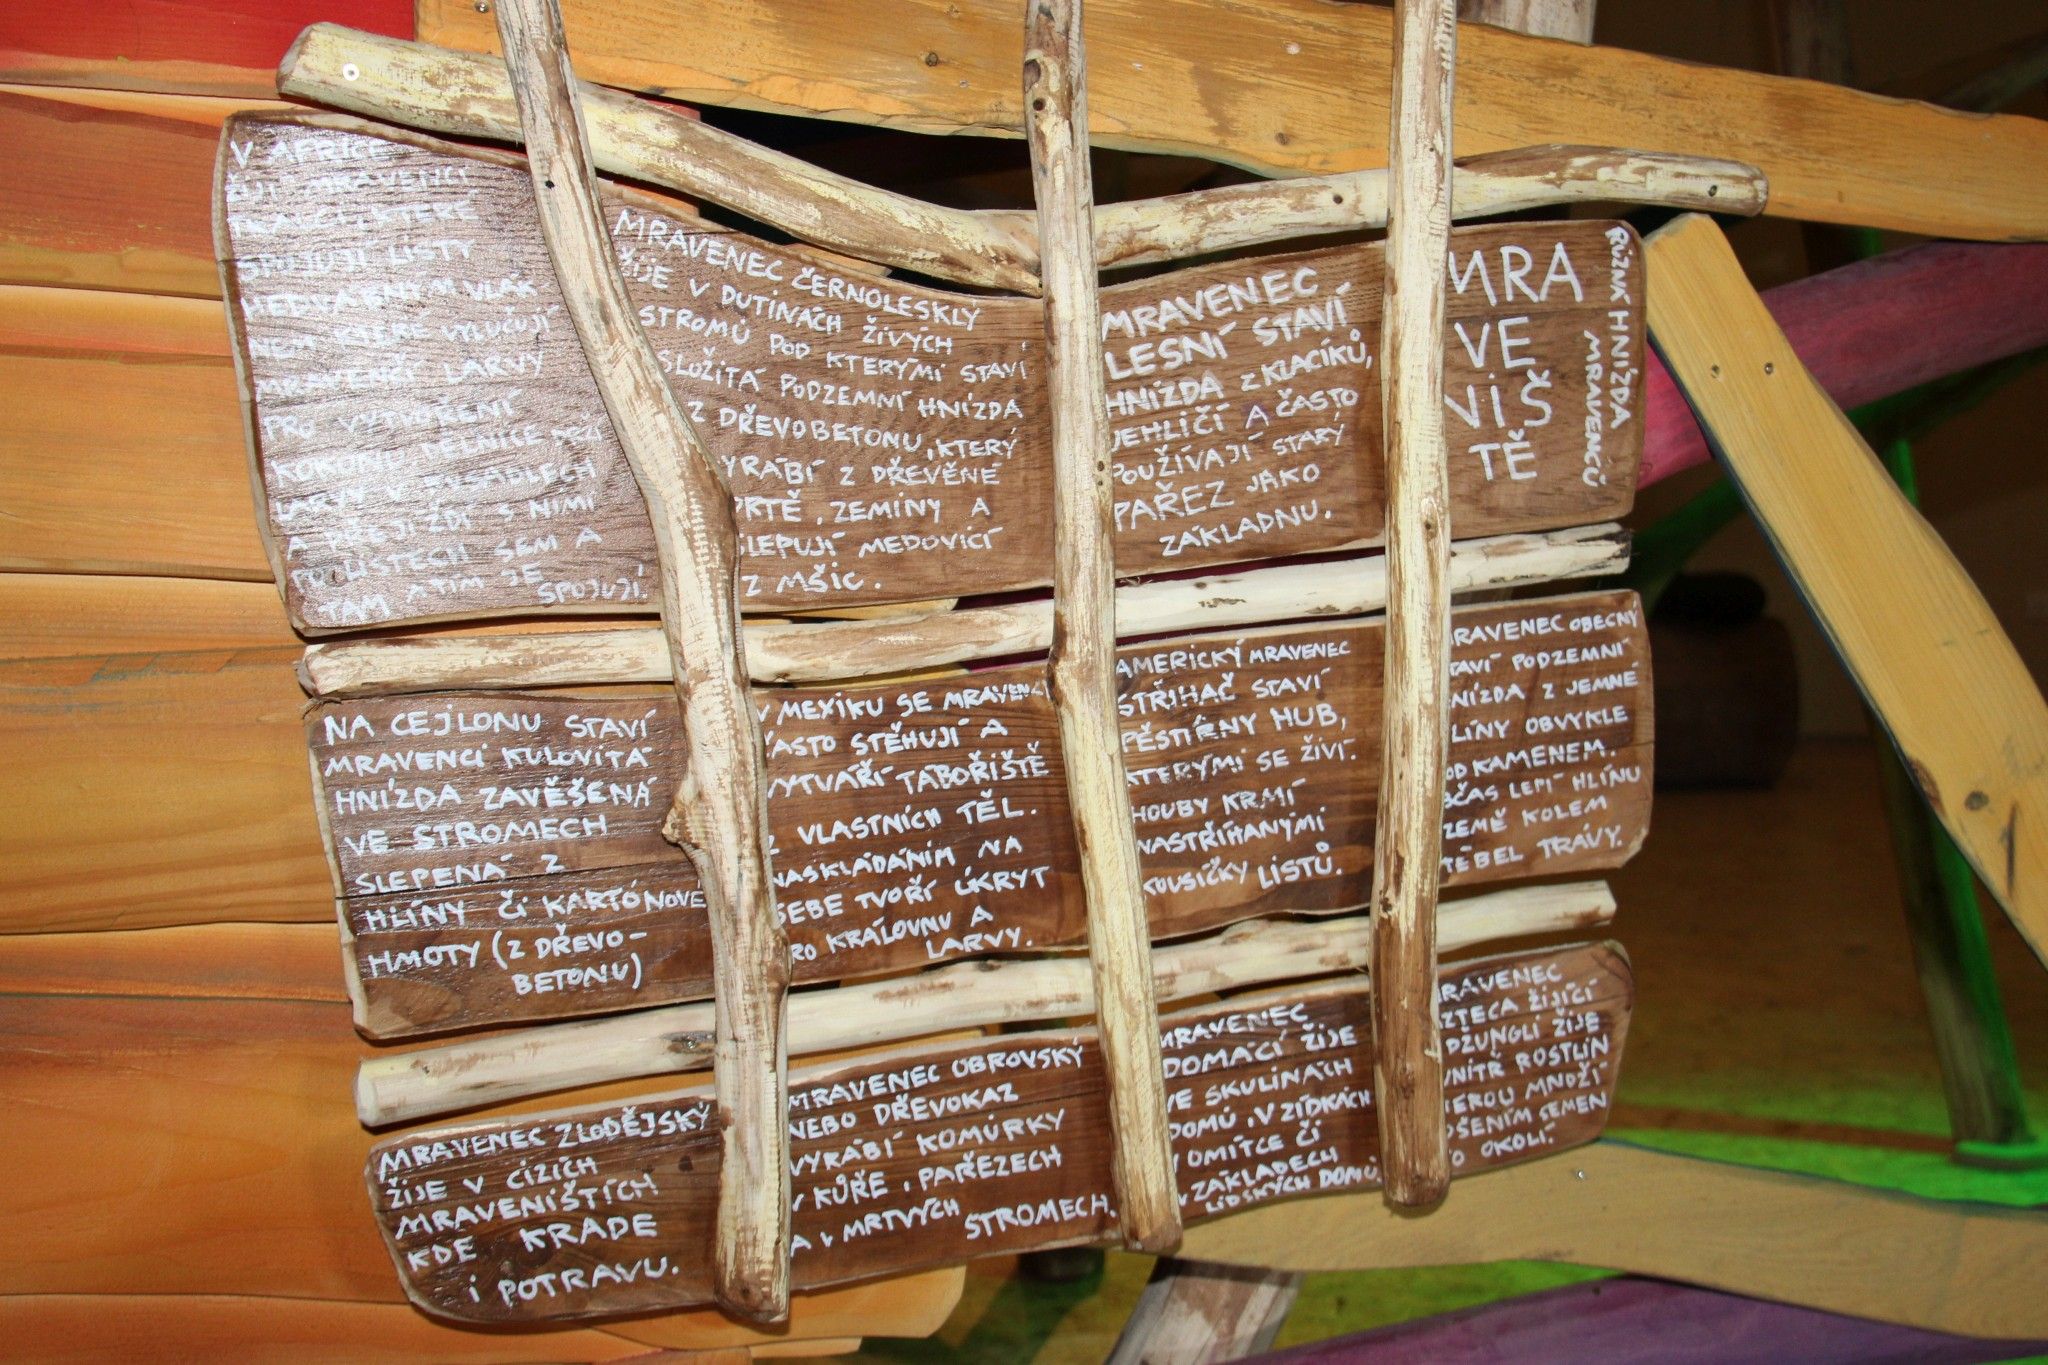 V AFRICE
ŽIJÍ MRAVENCI
KTERÉ
SPOJUJÍ LISTY
HEDVÁBNÝM VLÁK-
NEM KTERÉ VYLUČUJÍ
MRAVENČÍ LARVY
PRO VYTVOŘENÍ
KOKONU. DĚLNICE DRŽÍ
LARVY V KUSADLECH
A PŘEJÍŽDÍ S NIMI
PO LISTECH SEM A
TAM A TÍM JE
SPOJUJÍ.
MRAVENEC ČERNOLESKLÝ
ŽIJE V DUTINÁCH ŽIVÝCH
STROMŮ POD KTERÝMI STAVÍ
SLOŽITÁ PODZEMNÍ HNÍZDA
Z DŘEVOBETONU, KTERÝ
YRÁBÍ Z DŘEVĚNÉ
DRTĚ, ZEMINY A
SLEPUJÍ MEDOVICÍ
Z MŠIC.
MRAVENEC
LESNÍ STAVÍ
HNÍZDA Z KLACÍKŮ,
JEHLIČÍ A ČASTO
POUŽÍVAJÍ STARÝ
PAŘEZ JAKO
ZÁKLADNU.
MRA
VE
NIŠ
TĚ
RŮZNÁ HNÍZDA
MRAVENCŮ
NA CEJLONU STAVÍ
MRAVENCI KULOVITÁ
HNÍZDA ZAVĚŠENÁ
VE STROMECH
SLEPENÁ Z
HLÍNY ČI KARTÓNOVÉ
HMOTY (Z DŘEVO-
BETONU)
V MEXIKU SE MRAVENCI
ČASTO STĚHUJÍ A
VYTVÁŘÍ TÁBOŘIŠTĚ
Z VLASTNÍCH TĚL.
NASKLÁDÁNÍM NA
SEBE TVOŘÍ ÚKRYT
PRO KRÁLOVNU A
LARVY.
AMERICKÝ MRAVENEC
STŘIHAČ STAVÍ
PĚSTÍRNY HUB,
KTERÝMI SE ŽIVÍ.
HOUBY KRMÍ
NASTŘÍHANÝMI
KOUSÍČKY LISTŮ.
MRAVENEC OBECNÝ
STAVÍ PODZEMNÍ
HNÍZDA Z JEMNÉ
HLÍNY OBVYKLE
POD KAMENEM.
OBČAS LEPÍ HLÍNU
ZEMĚ KOLEM
STÉBEL TRÁVY.
MRAVENEC ZLODĚJSKÝ
ŽIJE V CIZÍCH
MRAVENIŠTÍCH
KDE KRADE
I POTRAVU.
MRAVENEC OBROVSKÝ
NEBO DŘEVOKAZ
VYRÁBÍ KOMŮRKY
V KŮŘE, PAŘEZECH
A V MRTVÝCH
STROMECH.
MRAVENEC
DOMÁCÍ ŽIJE
VE SKULINÁCH
DOMŮ, V ZÍDKÁCH
V OMÍTCE ČI
V ZÁKLADECH
LIDSKÝCH DOMŮ
MRAVENEC
AZTECA ŽIJÍCÍ
V DŽUNGLI ŽIJE
UVNITŘ ROSTLIN
KTEROU MNOŽÍ
NOŠENÍM SEMEN
DO OKOLÍ.